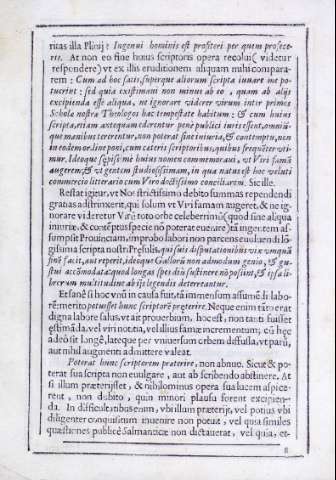 ritas illa Plinij: Ingenui hominis est profiteri per quem profece-
rit. At non eo fine huius scriptoris opera recolui (videtur
respondere) vt ex illis eruditionem aliquam mihi compara-
rem: Cum ad hoc satis, superque aliorum scripta iuuare me po-
tucrint: sed quia existimaui non minus ab eo, quam ab alijs
excipienda esse aliqua, ne ignorare viderer virum intir primos
Schola nostra Theologos hac tempestate habitum: & cum huius
scripta, etiam antequam ederentur penè publici iuris essent, omniū-
que manibus tererentur, non poterat sine iniuria, & contemptu, non
in eodem ordine poni, cum cateris scriptoribus, quibus frequēter vti-
mur. Ideoque sępissimè huius nomen commemoraui, vt Viri famā
augerem; & vt gentem studiosissimam, in qua natus est hoc veluti
commercio litterario cum Viro doctissimo conciliarem. Sic ille.
Restat igitur, vt Nos strictissimo debito summas rependendi
gratias adstrinxerit, qui solum vt Viri famam augeret, & ne ig-
norare videretur Virū toto orbe celeberrimū (quod sine aliqua
iniuria, & contēptus specie nō poterat euenire) tā ingentem as-
sumpsit Prouinciam, improbo labori non parcens euoluendi lō-
gissima scripta nostri Pręsulis, qui suis disputationibus vix vmquā
finē facit, aut reperit, ideòque Gallorū non admodum genio, & gu-
stui accōmodata: quod longas spes diù sustinere nō possint, & ipsa li-
brorum multitudine ab ijs legendis deterreantur.
Et sanè si hoc vnū in causa fuit, tā immensum assumēdi labo-
rē: meritò potuisset hunc scriptorē pręterire. Neque enim tā merat
digna labore salus, vt ait prouerbium, hoc est, non tanti fuisset
ęstimāda, vel viri notitia, vel illius famę incrementum; cū hęc
adeò sit longè, lateque per vniuersum orbem diffusa, vt parū,
aut nihil augmenti admittere valeat.
Poterat hunc scriptorem praterire, non abnuo. Sicut & po-
terat sua scripta non euulgare, aut ab scribendo abstinere. At
si illum præterijsset, & nihilominus opera sua lucem aspice-
rent, non dubito, quin minori plausu forent excipien-
da. In difficultatibus enim, vbi illum præterijt, vel potius vbi
diligenter conquisitum inuenire non potuit, vel quia similes
quæstiones publicè Salmanticæ non dictauerat, vel quia, et-